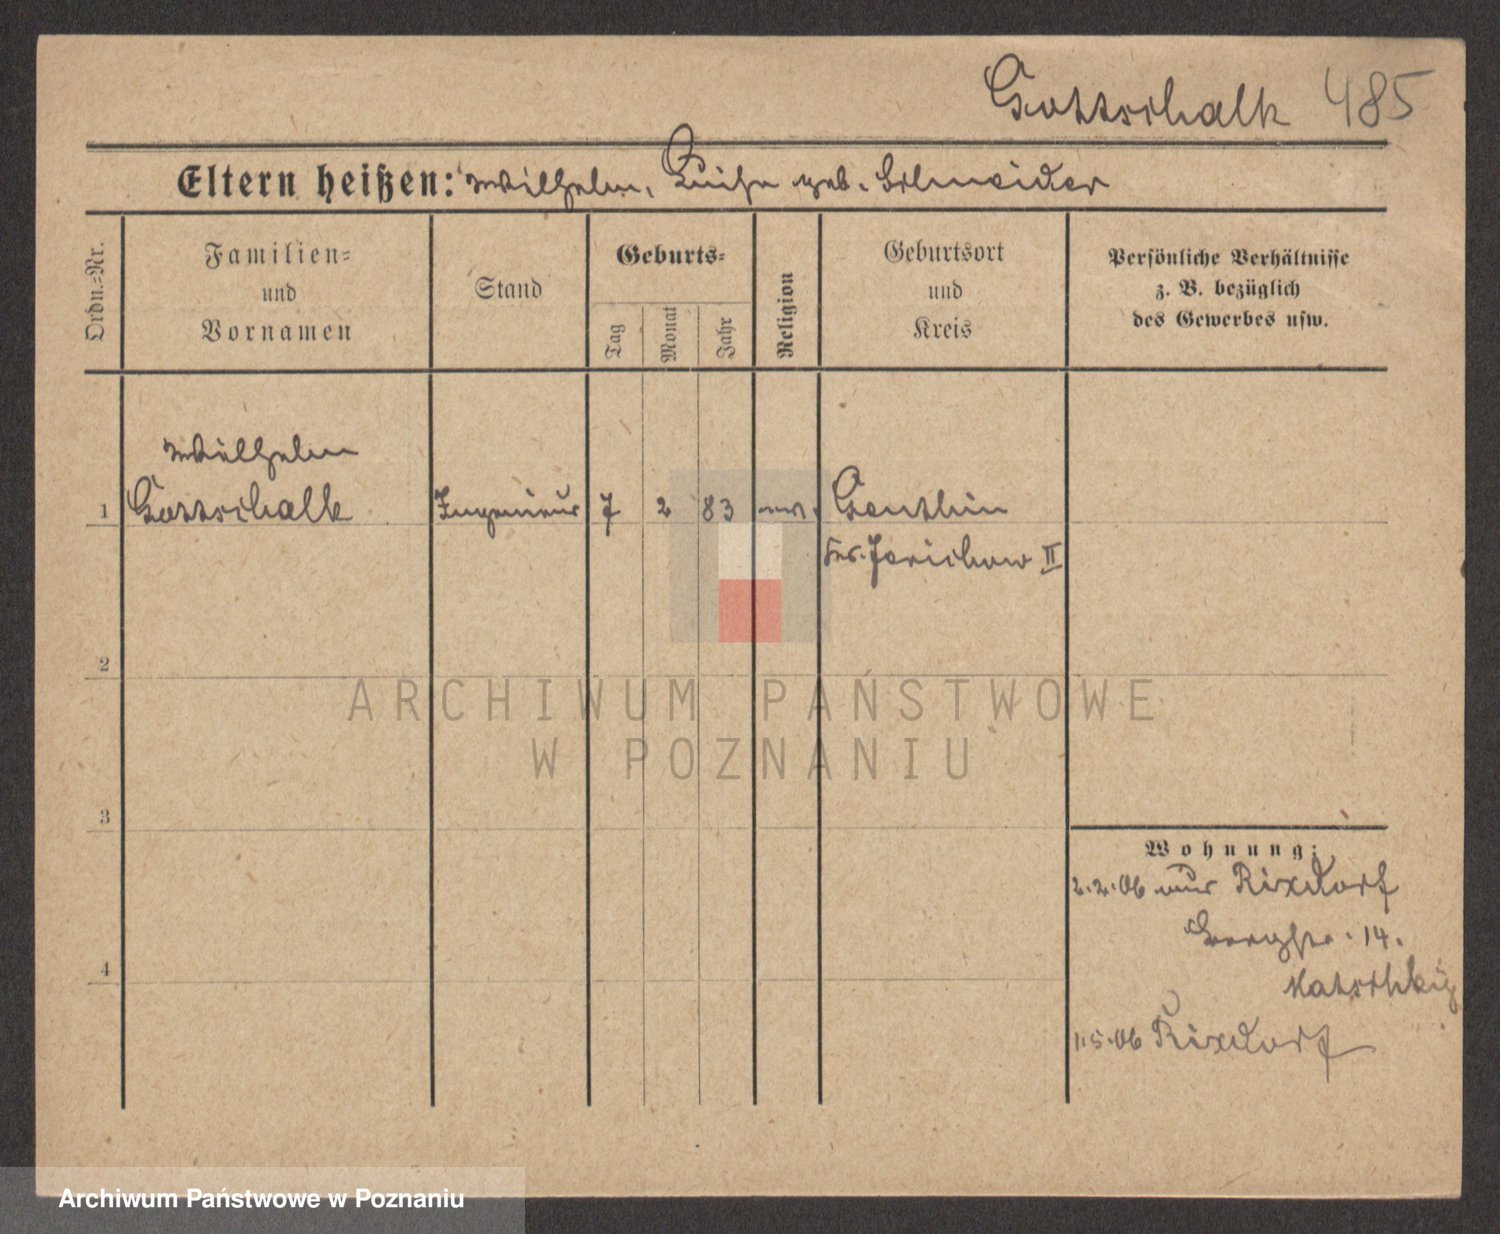 Gottschalk 485
Eltern heißen: Wilhelm, Luise geb. Schneider
Ordn.-Nr.
Familien-
und
Vornamen
Stand
Geburts-
Tag
Monat
Jahr
Religion
Geburtsort
und
Kreis
Persönliche Verhältnisse
z. B. bezüglich
des Gewerbes usw.
Wilhelm
1 Gottschalk Ingenieur 7 2 83 ev. Genthin
Kr. Jerichow II
2
ARCHIWUM PAŃSTWOWE
W POZNANIU
3
Wohnung:
2.2.06 aus Rixdorf
Bergstr. 14.
4
1.5.06 Rixdorf
Archiwum Państwowe w Poznaniu